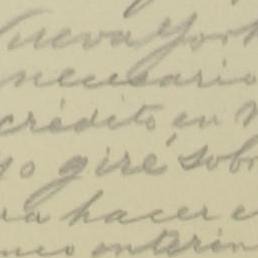 Nueva York
necesario
crédito en N
yo giré sobr
ra hacer e